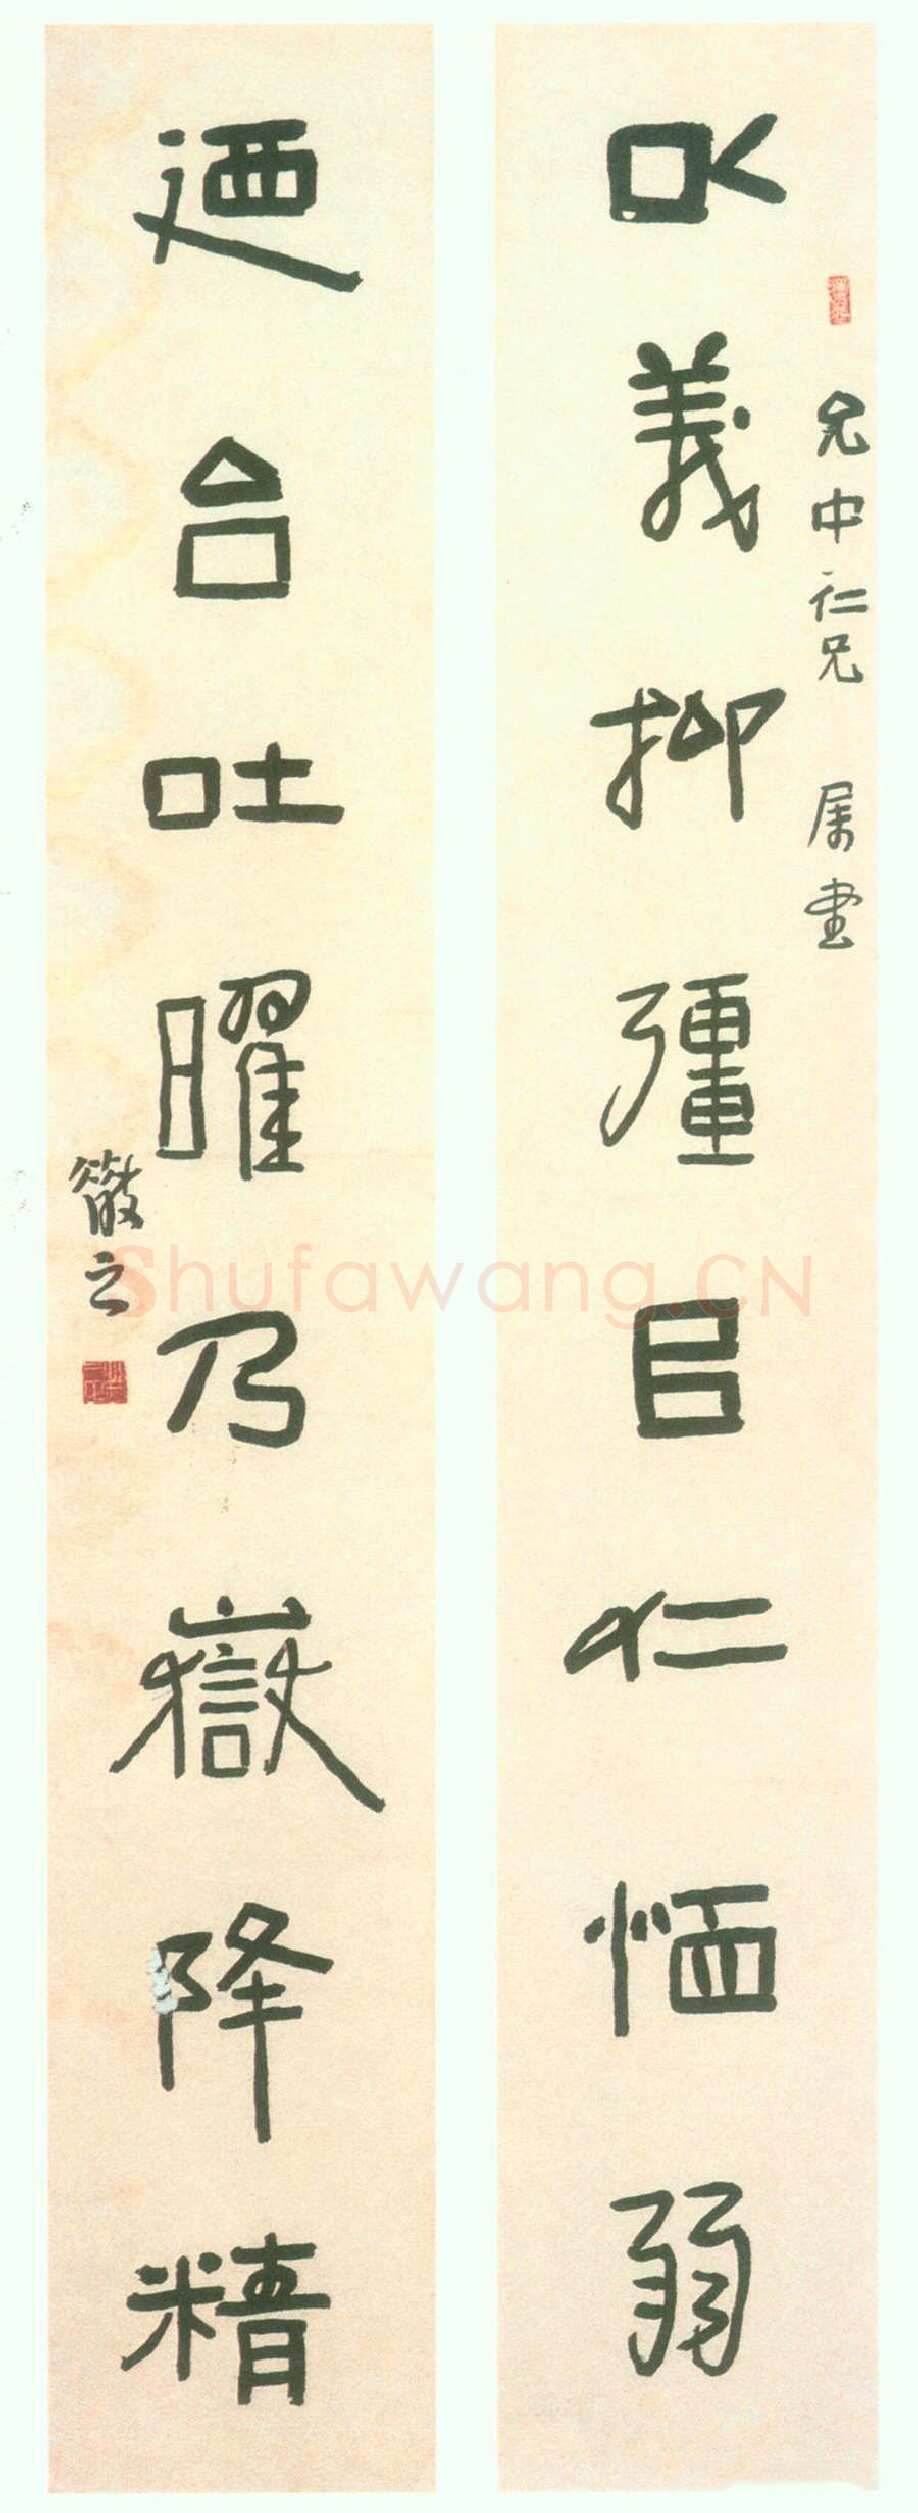 允中仁兄 属書
以義抑彊㠯仁恤弱
迺台吐曜乃嶽降精
散之
Shufawang.CN